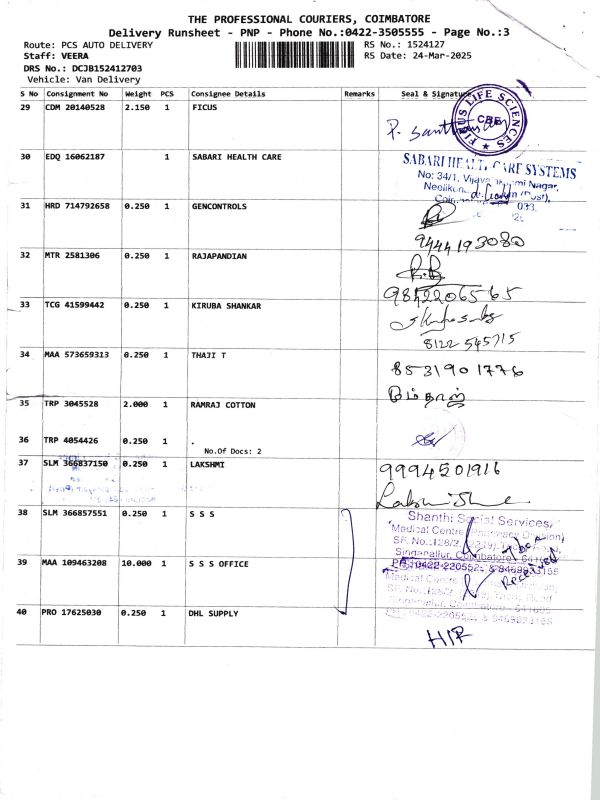 THE PROFESSIONAL COURIERS, COIMBATORE
Delivery Runsheet - PNP - Phone No.:0422-3505555 - Page No.:3
Route: PCS AUTO DELIVERY
Staff: VEERA
DRS No.: DCJB152412703
Vehicle: Van Delivery
RS No.: 1524127
RS Date: 24-Mar-2025
S No Consignment No Weight PCS Consignee Details Remarks Seal & Signature
29 CDM 20140528 2.150 1 FICUS
FICUS LIFE SCIENCES
CBE
30 EDQ 16062187 1 SABARI HEALTH CARE
SABARI HEALTH CARE SYSTEMS
No: 34/1, Nagar,
31 HRD 714792658 0.250 1 GENCONTROLS
9444193080
32 MTR 2581306 0.250 1 RAJAPANDIAN
R.B
9842206565
33 TCG 41599442 0.250 1 KIRUBA SHANKAR
8122 545715
34 MAA 573659313 0.250 1 THAJI T
8531901776
35 TRP 3045528 2.000 1 RAMRAJ COTTON
36 TRP 4054426 0.250 1 .
No.Of Docs: 2
37 SLM 366837150 0.250 1 LAKSHMI
9994501916
38 SLM 366857551 0.250 1 S S S
Shanthi Social Services,
Medical Centre (Pharmacy Division)
Singanallur, Coimbatore
PH: 0422-220552, & 8469833155
Received
39 MAA 109463208 10.000 1 S S S OFFICE
40 PRO 17625030 0.250 1 DHL SUPPLY
H/R